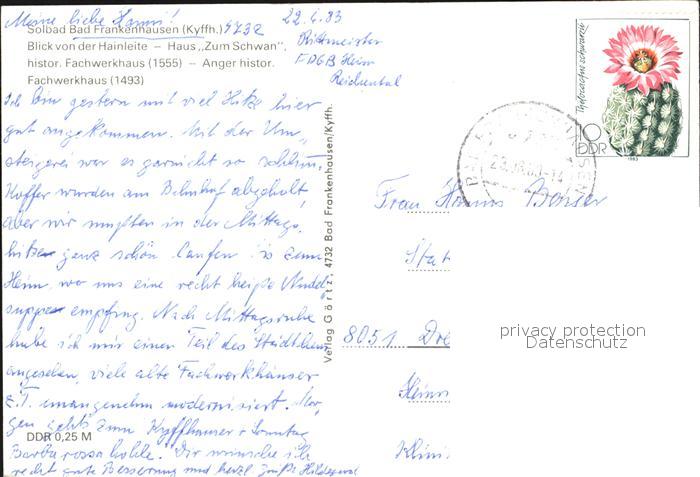 Meine liebe Hanni!
22.4.83
Solbad Bad Frankenhausen (Kyffh.) 4732
Blick von der Hainleite – Haus „Zum Schwan",
histor. Fachwerkhaus (1555) – Anger histor.
Fachwerkhaus (1493)
Rittmeister
FDGB Heim
Reichental
Ich bin gestern mit viel Hitze hier
gut angekommen. Mit der Um-
steigerei war es garnicht so schlimm,
Koffer wurden am Bahnhof abgeholt,
aber wir mußten in der Mittags-
hitze ganz schön laufen bis zum
Heim, wo uns eine recht heiße Nudel-
suppe empfing. Nach Mittagsruhe
habe ich mir einen Teil des Städtchens
angesehen, viele alte Fachwerkhäuser
z.T. unangenehm modernisiert. Mor-
gen geht's zum Kyffhäuser u Sonntag
DDR 0,25 M
Barbarossahöhle. Dir wünsche ich
recht gute Besserung und herzl. Grüße Hildegard
Verlag Görtz, 4732 Bad Frankenhausen/Kyffh.
Thelocactus schwarzii
10
DDR
1983
Frau Hanna
Stat
8051 Dre
Heinr
Klini
privacy protection
Datenschutz